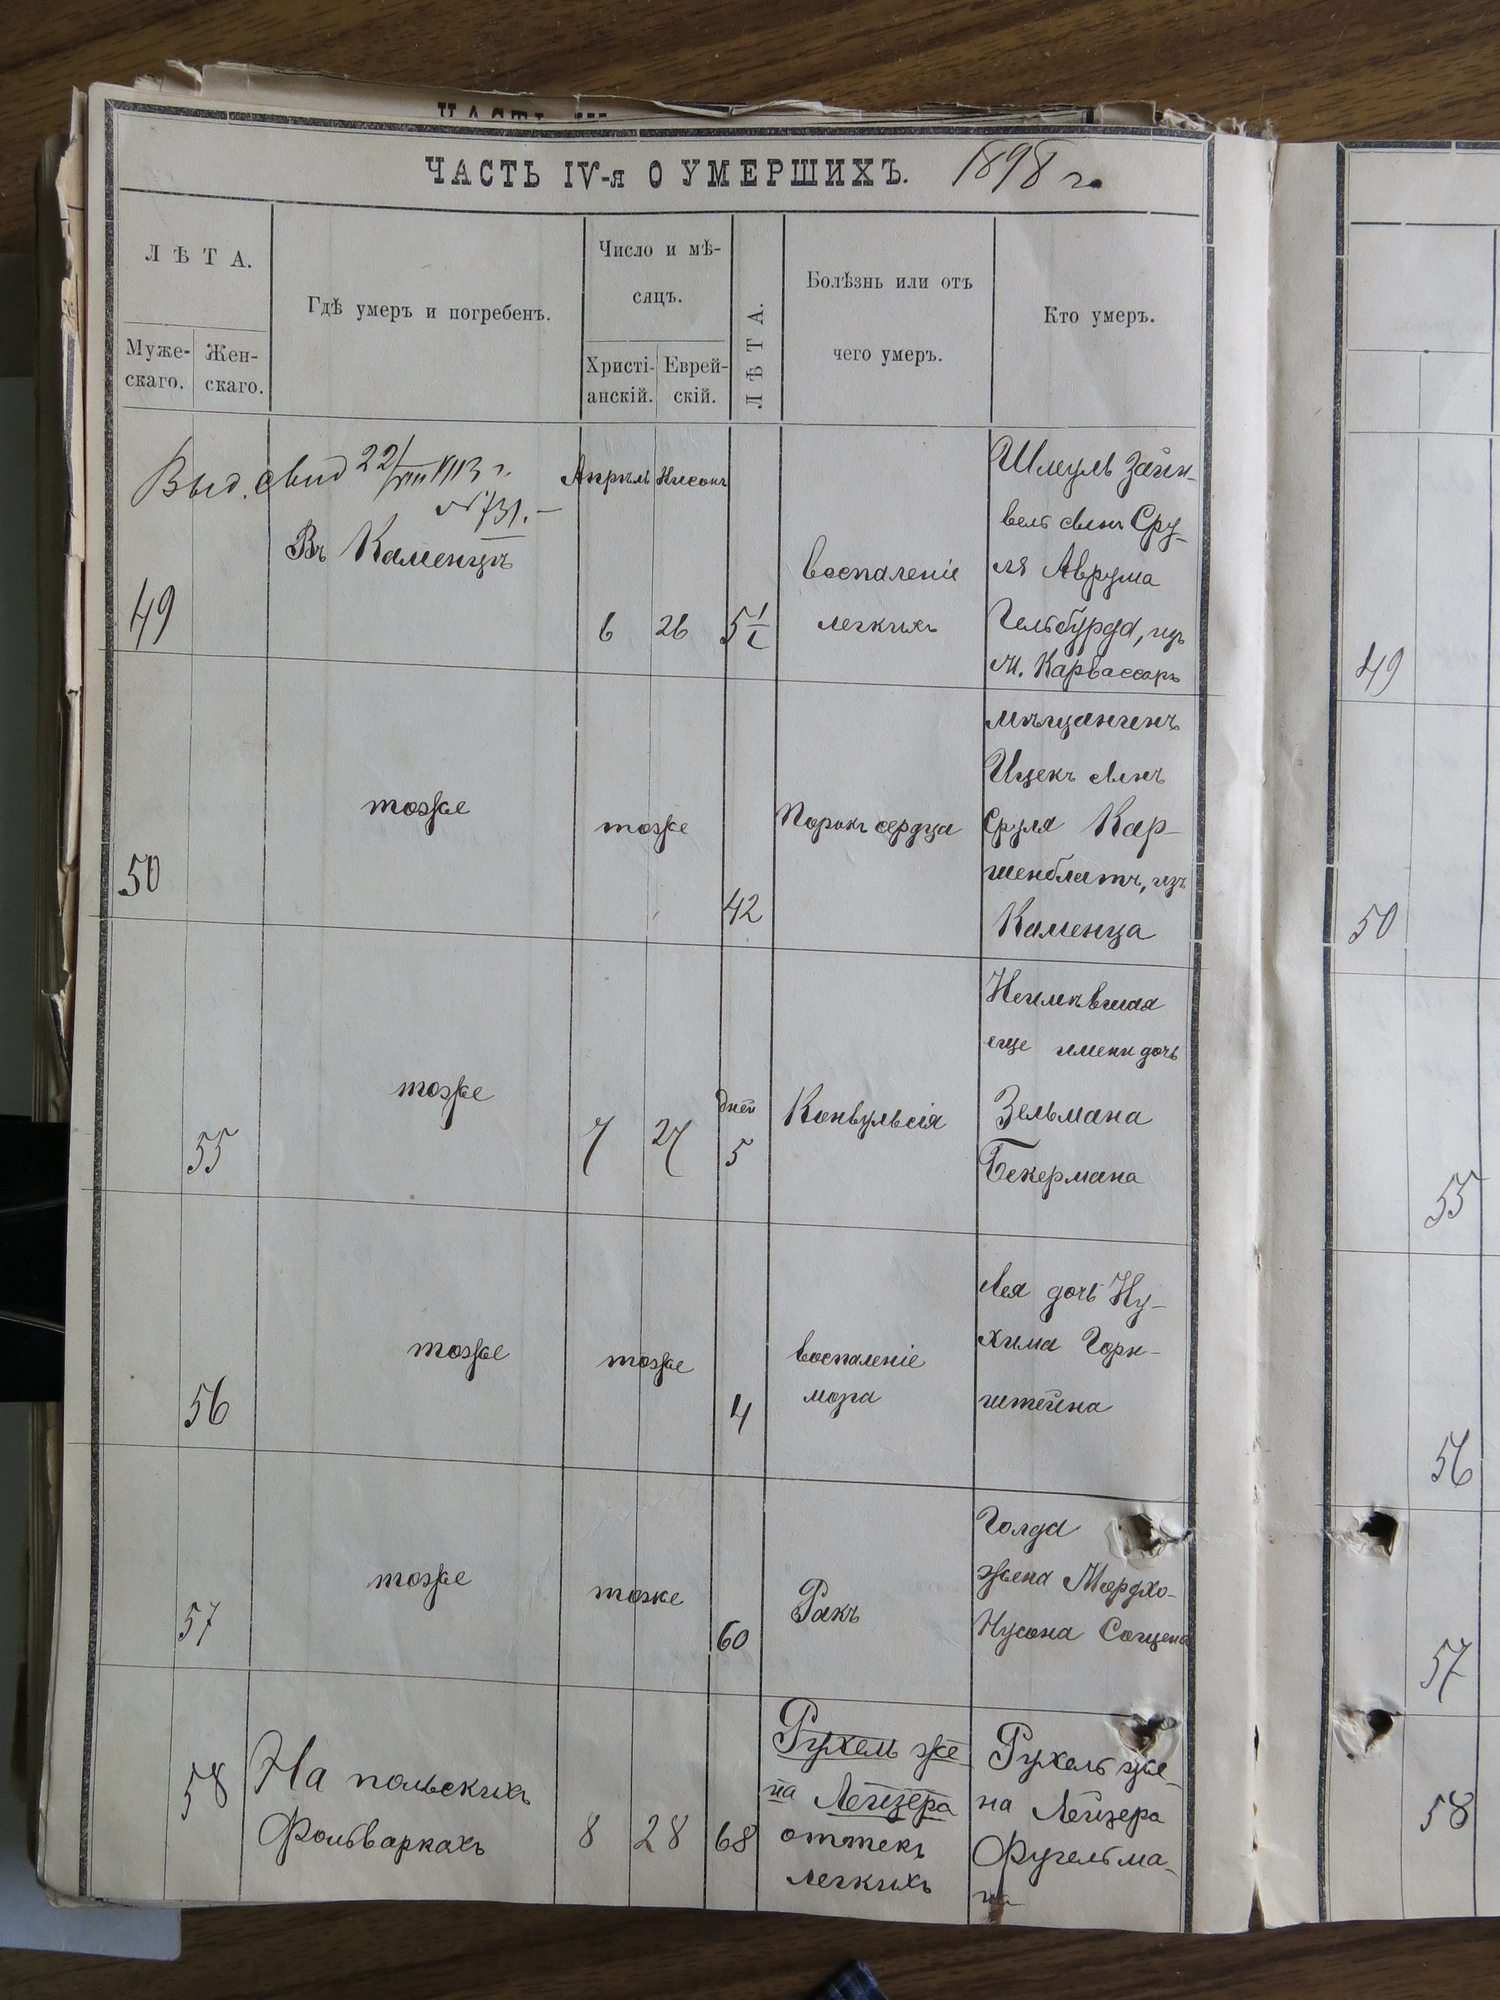 ЧАСТЬ IV-я О УМЕРШИХЪ. 1898 г.
ЛѢТА.
Муже-
скаго.
Жен-
скаго.
Гдѣ умеръ и погребенъ.
Число и мѣ-
сяцъ.
Христі-
анскій.
Еврей-
скій.
ЛѢТА.
Болѣзнь или отъ
чего умеръ.
Кто умеръ.
Выд. свид 22/VIII 1913 г.
№ 731.—
49
Въ Каменцѣ
Апрѣль
6
Нисонъ
26
5½
воспаленіе
легкихъ
Шмуль Зайн-
вель сынъ Сру-
ля Аврума
Гельбурда, изъ
м. Карвасаръ
50
тоже
тоже
42
Порокъ сердца
мѣщанинъ
Ицекъ сынъ
Сруля Кар-
шенблатъ, изъ
Каменца
55
тоже
7
27
дней
5
Конвульсія
Неимѣвшая
еще имени дочь
Зельмана
Бекермана
56
тоже
тоже
4
воспаленіе
мозга
Лея дочь Ну-
хима Горн-
штейна
57
тоже
тоже
60
Ракъ
Голда
жена Мордхо-
Нусона
58
На польскихъ
Фольваркахъ
8
28
68
Рухель же
на Лейзера
оттекъ
легкихъ
Рухель же-
на Лейзера
Фугельма-
на
49
50
55
56
57
58